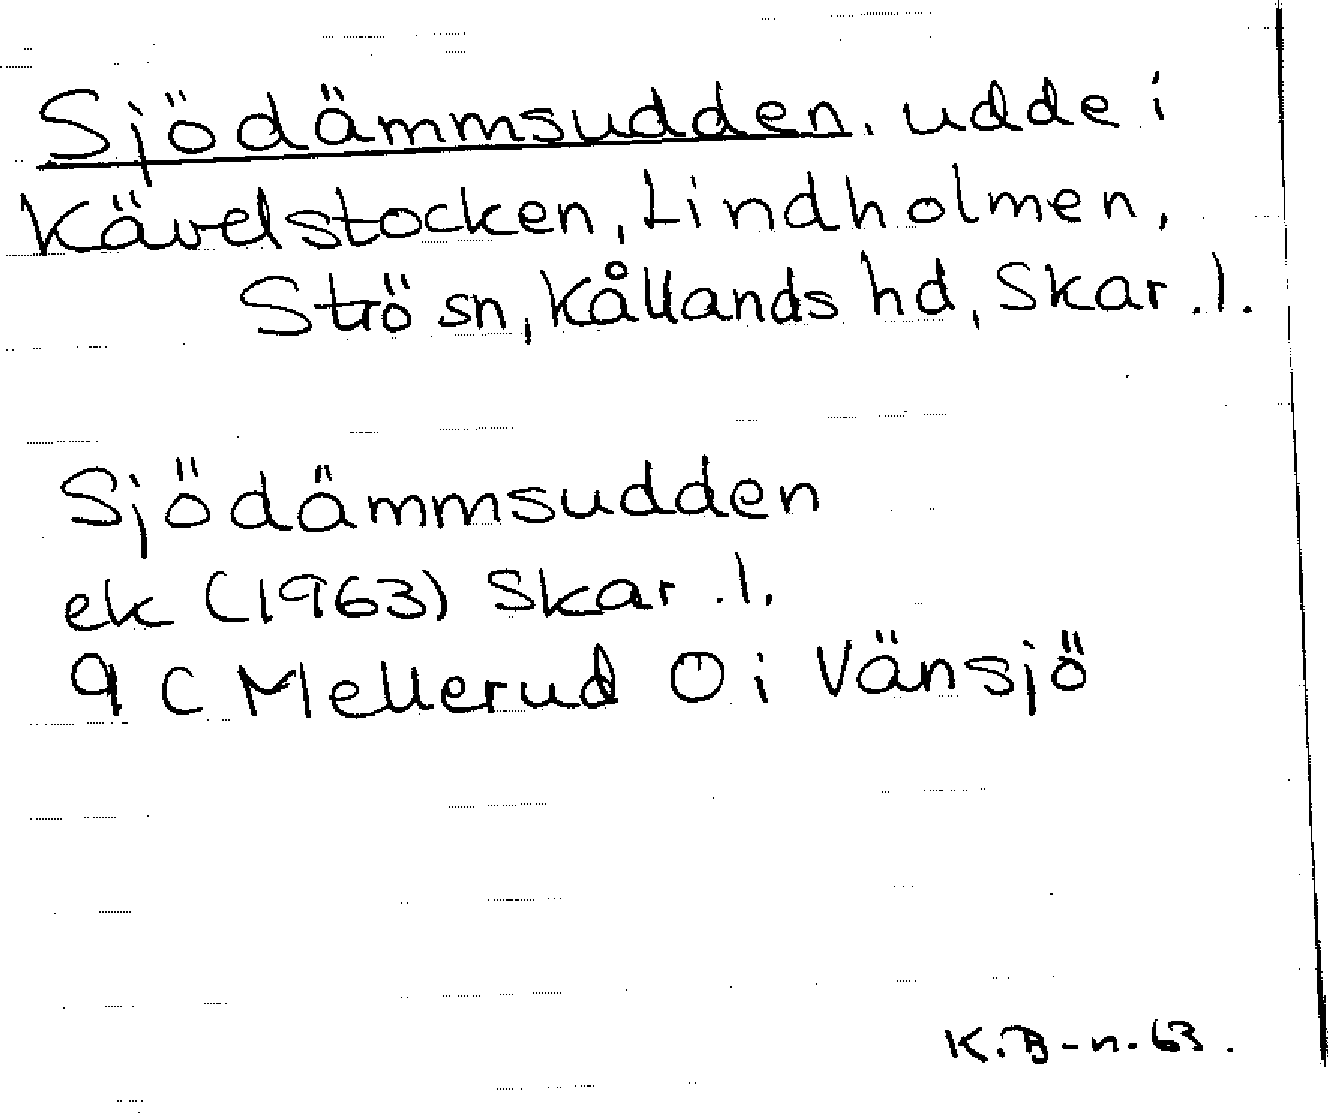 Sjödämmsudden, udde i
Kävelstocken, Lindholmen,
Strö sn, Kållands hd, Skar. l.
Sjödämmsudden
ek (1963) Skar. l.
9 C Mellerud Ö i Vänsjö
K.B-n. 63.